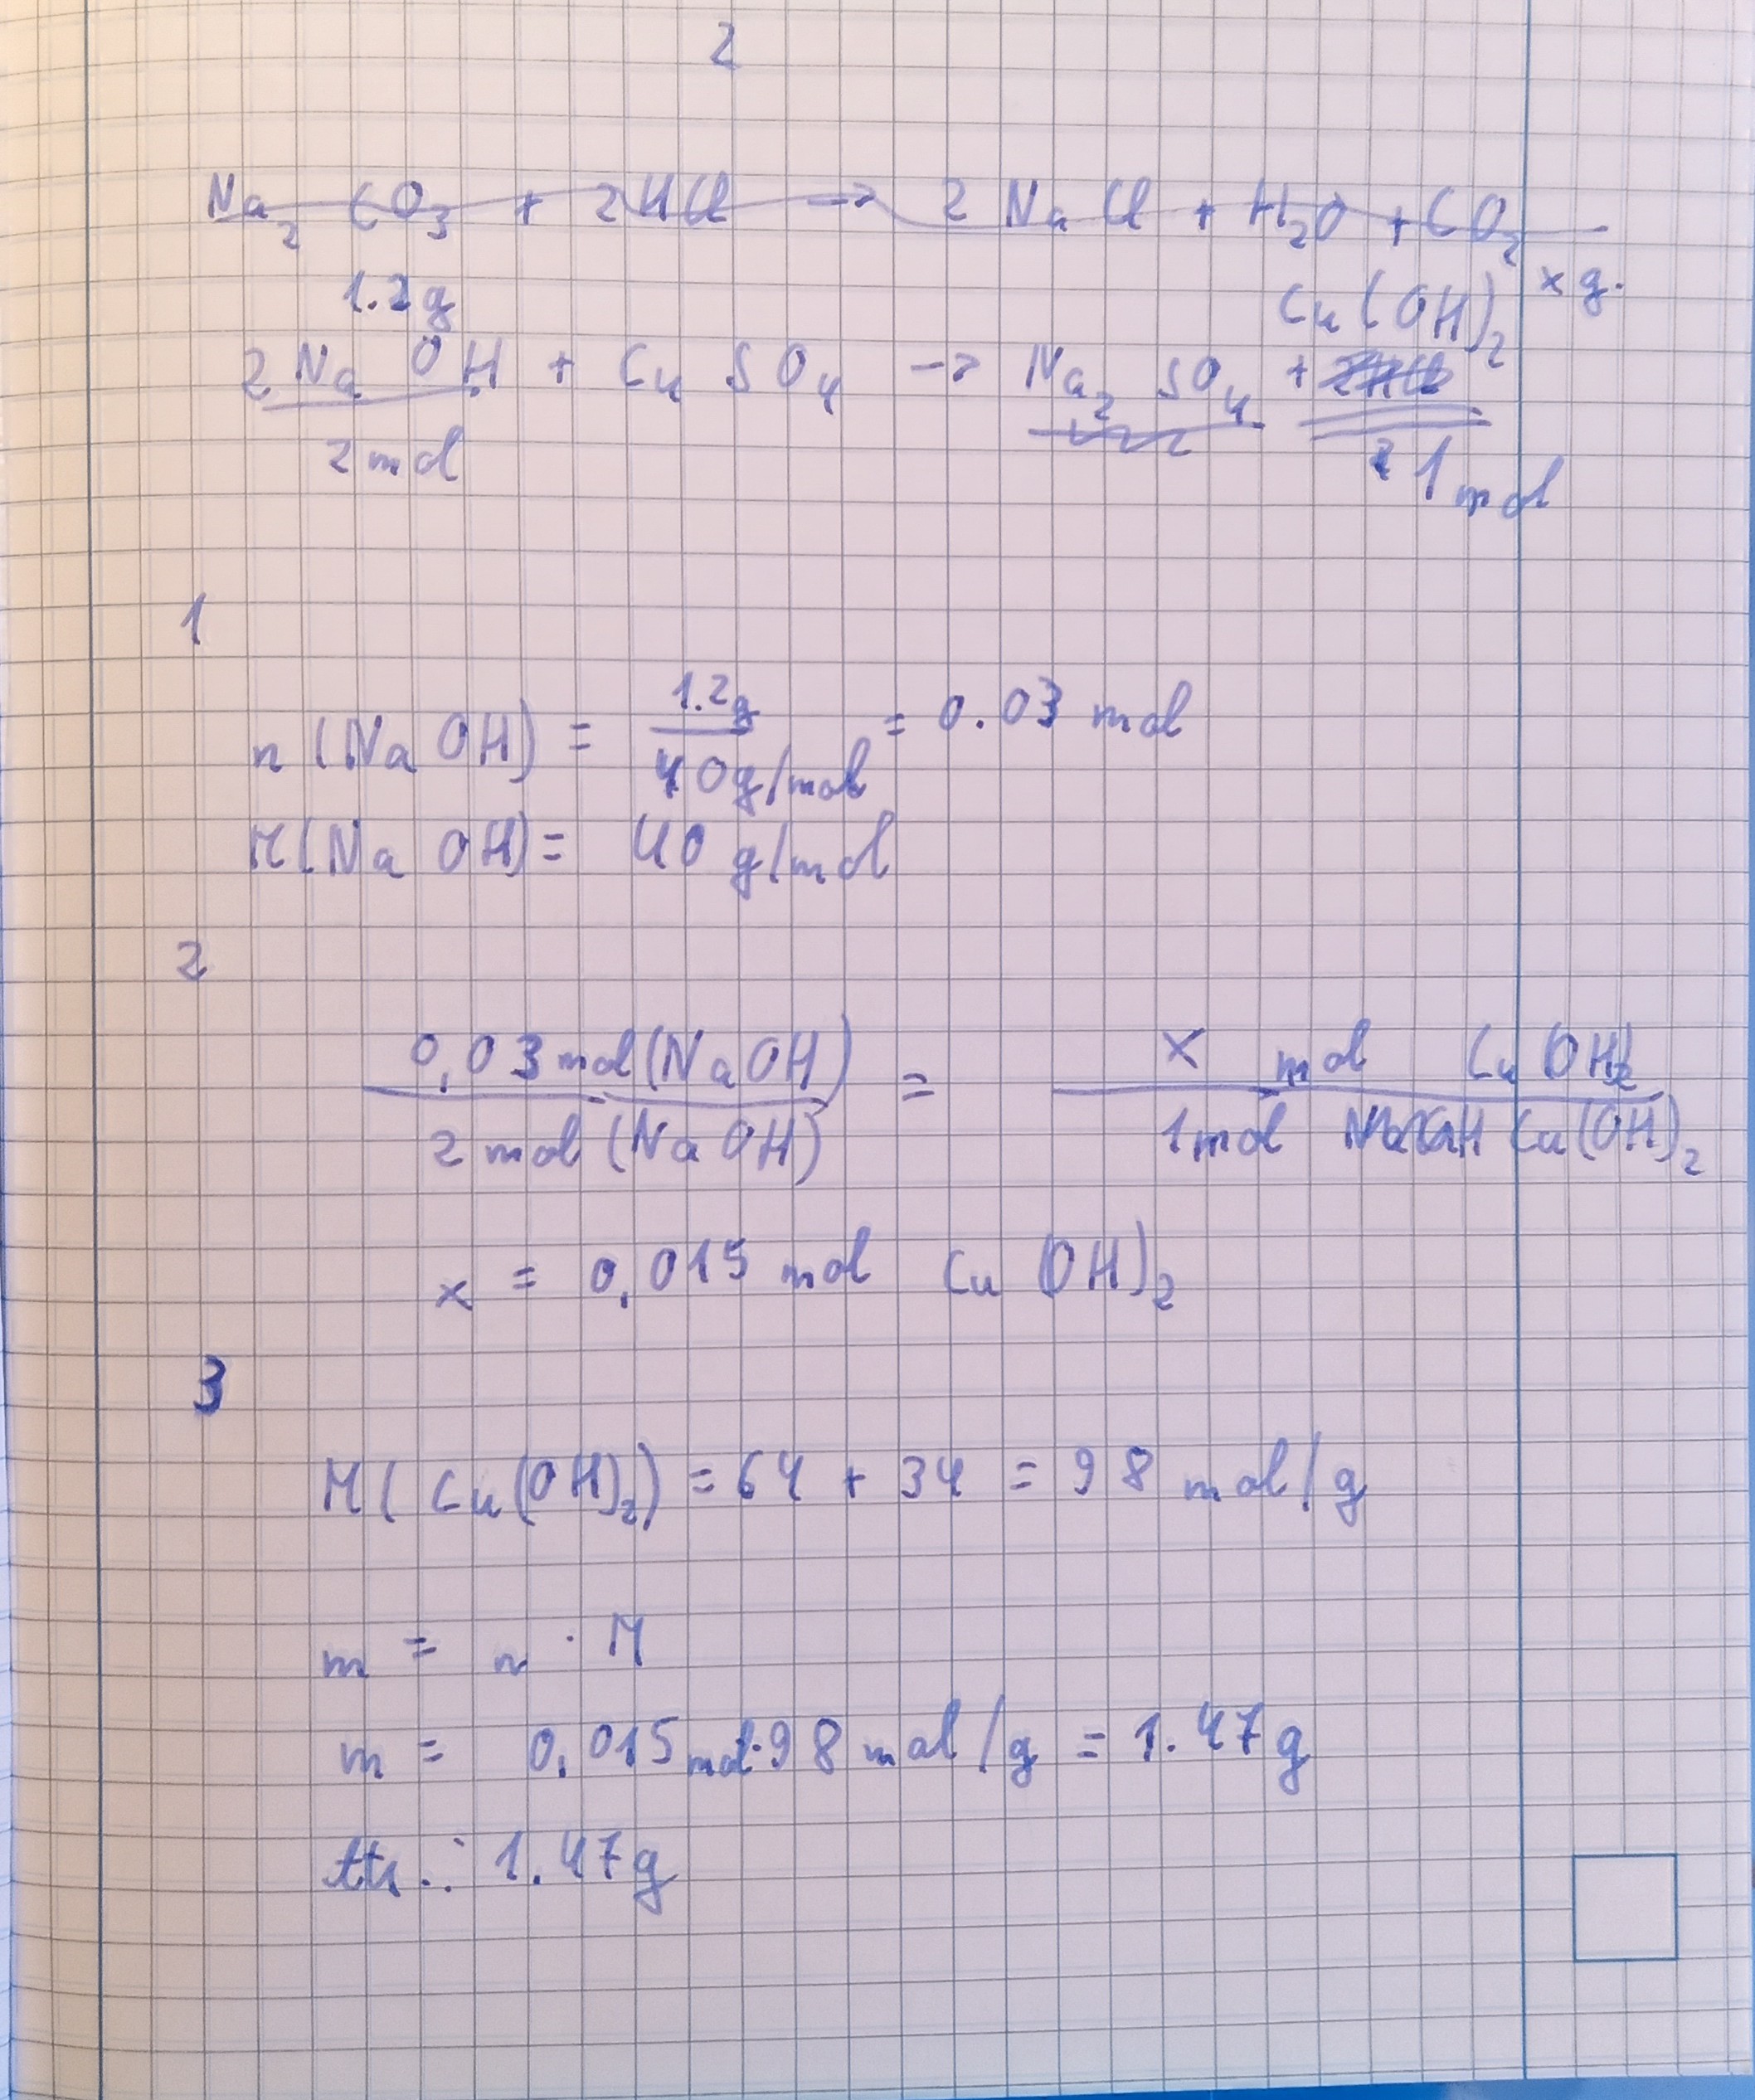 2
Na₂ CO₃ + 2HCl → 2 NaCl + H₂O + CO₂
1.2g Cu(OH)₂ x g.
2NaOH + CuSO₄ → Na₂SO₄ +
2mol 1mol
1
n(NaOH) = 1.2g / 40g/mol = 0.03 mol
M(NaOH) = 40 g/mol
2
0,03mol(NaOH) / 2mol(NaOH) = x mol Cu(OH)₂ / 1mol Cu(OH)₂
x = 0,015 mol Cu(OH)₂
3
M(Cu(OH)₂) = 64 + 34 = 98 mol/g
m = n · M
m = 0,015mol·98 mol/g = 1.47g
1.47g